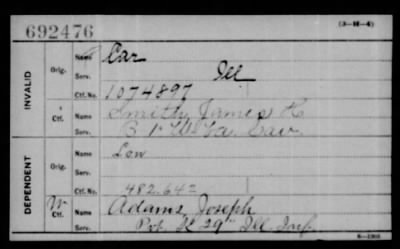 692476
(3-H-4)
INVALID
Orig. Name Car
Serv. Ill
Ctf. No. 1074897
Ctf. Name Smith, James H
Serv. B 1" W Va Cav
DEPENDENT
Orig. Name Low
Serv.
Ctf. No. 482.642
W Ctf. Name Adams, Joseph
Serv. Pvt. K 29" Ill. Inf.